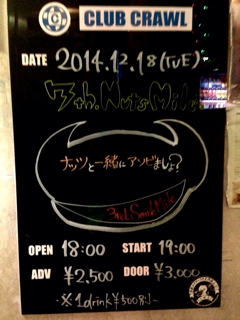 CLUB CRAWL
DATE 2014.12.18(TUE)
7th. Nuts Mile
ナッツと一緒にアソビましょ?
OPEN 18:00 START 19:00
ADV ¥2,500 DOOR ¥3,000
※1drink¥500別